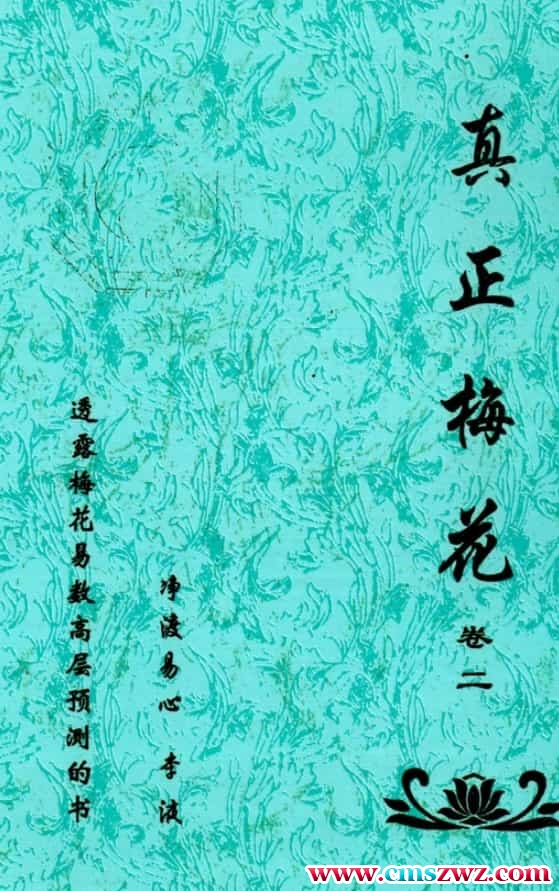 真正梅花
卷二
净渡易心 李波
透露梅花易数高层预测的书
www.cmszwz.com